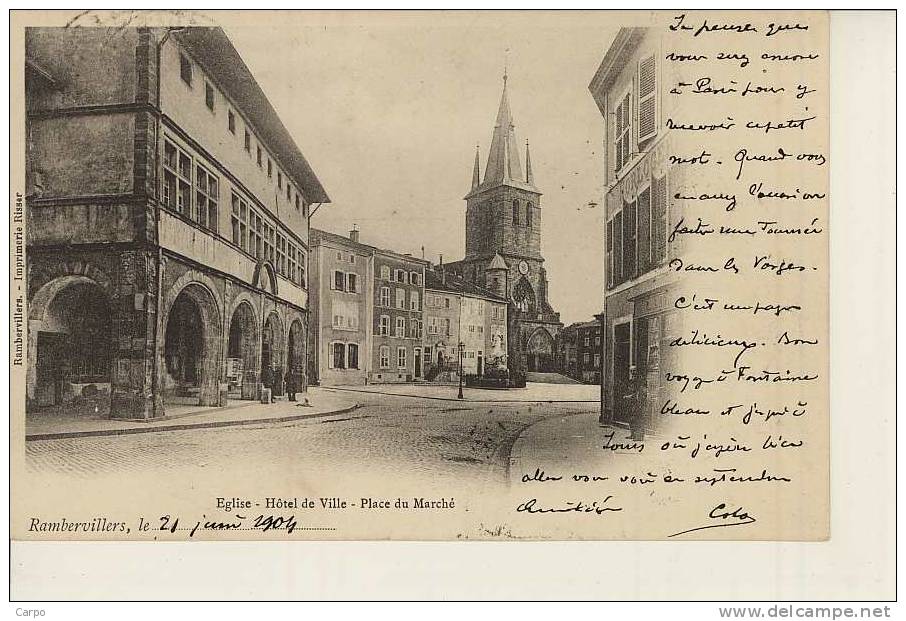 Je pense que
vous serez encore
à Paris pour y
recevoir ce petit
mot. Quand vous
aurez l'occasion
faites une Tournée
dans les Vosges.
C'est un pays
délicieux. Bon
voyage à Fontaine
bleau et jusqu'à
Tours où j'espère bien
aller vous voir en septembre
Amitiés
Rambervillers. - Imprimerie Risser
HORLOGERIE
Eglise - Hôtel de Ville - Place du Marché
Rambervillers, le 21 juin 1904
Carpo
http://www.delcampe.net